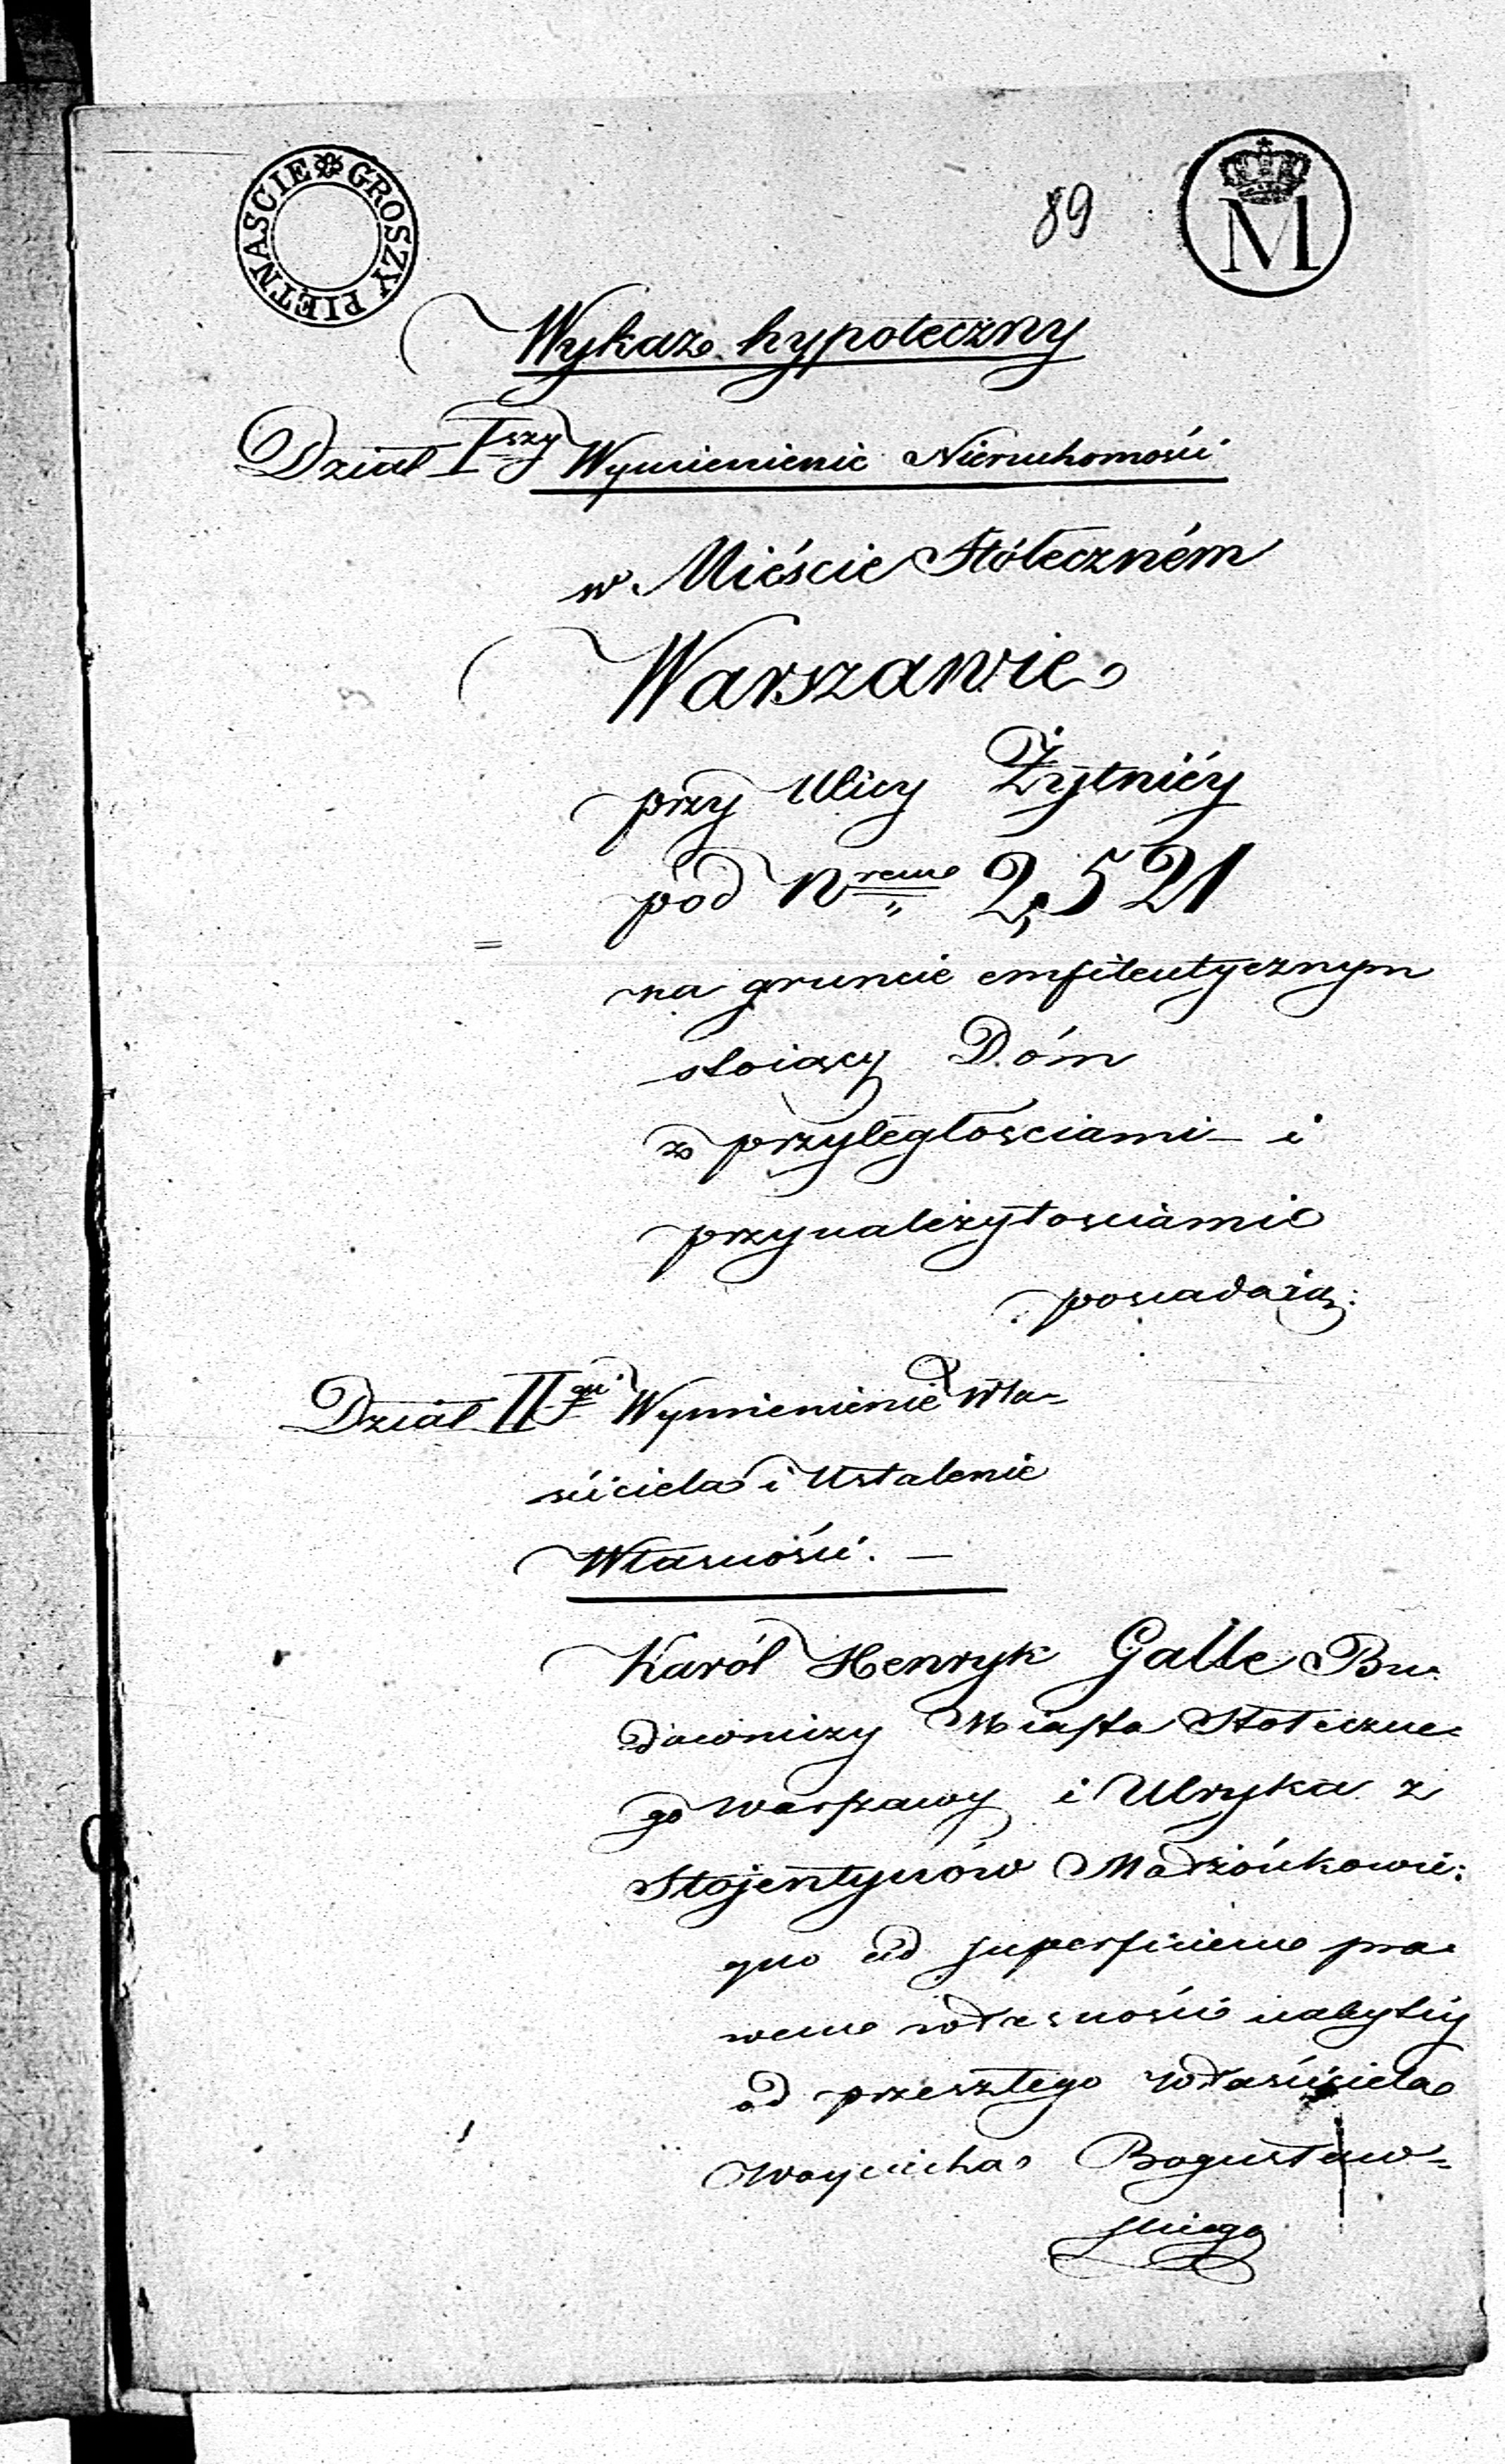 GROSZY PIĘTNASCIE
89
M
Wykaz hypoteczny
Dział Iszy Wymienienie Nieruchomości
w Mieście Stółeczném
Warszawie
przy Ulicy Żytniéy
pod Nrem 2,521
na gruncie emfiteutycznym
stoiący Dóm
z przyległościami i
przynależytościami
posiadaią:
Dział IIgi Wymienienie Wła-
ściciela i Ustalenie
Własności. —
Karól Henryk Galle Bu-
downiczy Miasta Stołeczne-
go Warszawy i Ulryka z
Stojentynów Małżónkowie:
quo ad superficiem pra-
wem własności nabytéy
od przeszłego właściciela
Woyciecha Bogusław-
skiego